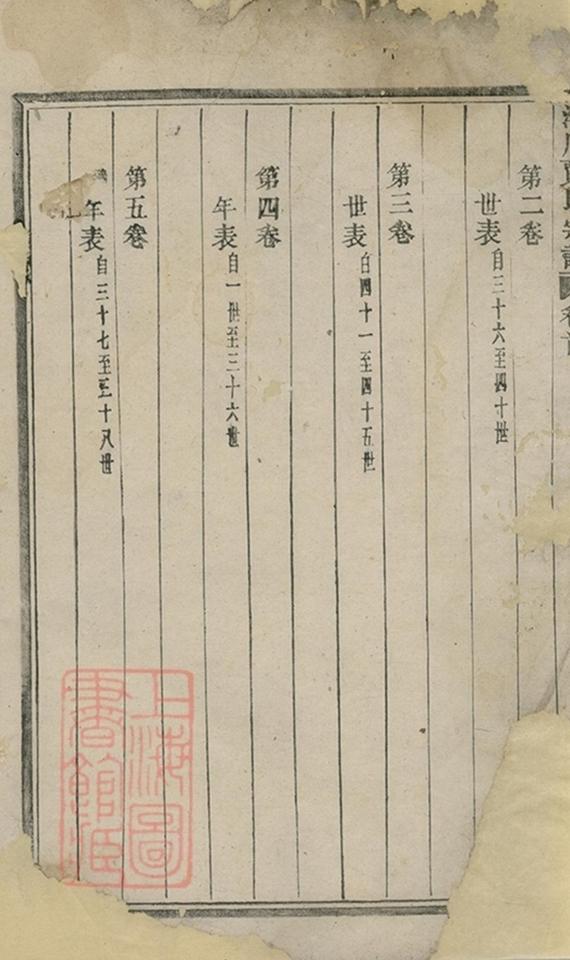 第二卷
世表自三十六至四十世
第三卷
世表自四十一至四十五世
第四卷
年表自一世至三十六世
第五卷
年表自三十七至三十八世
氏宗譜
上海圖書館藏